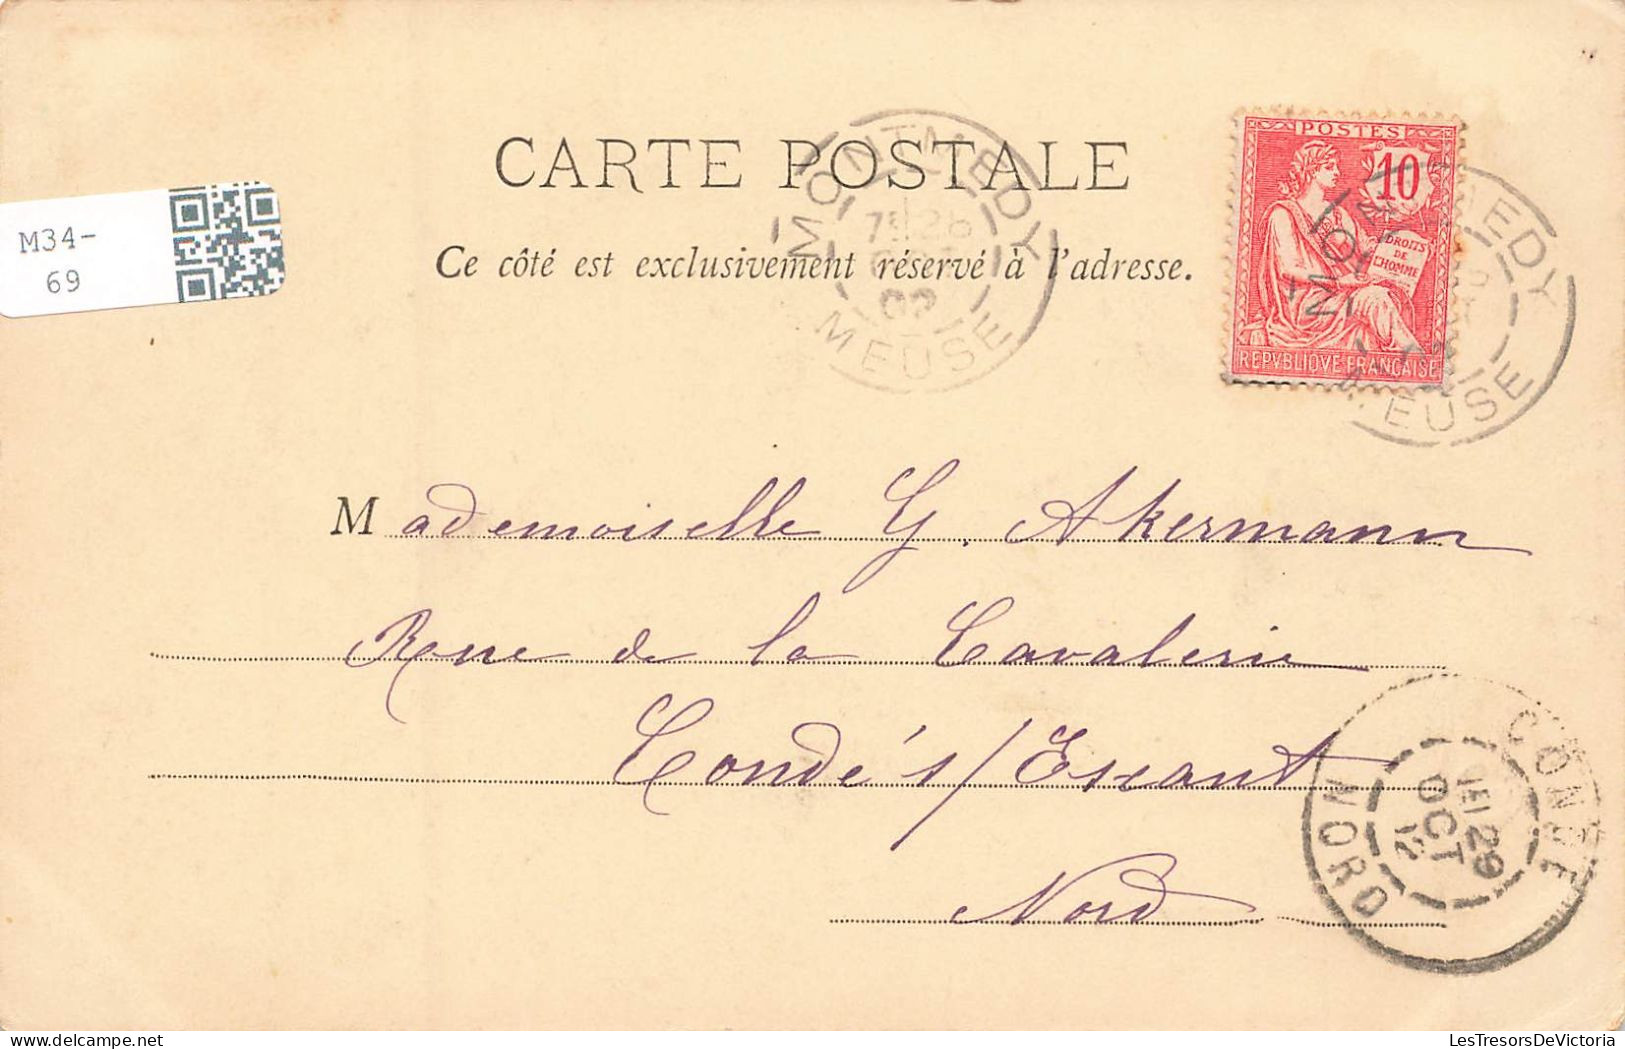 CARTE POSTALE
Ce côté est exclusivement réservé à l'adresse.
MONTMEDY
7E 28
02
MEUSE
POSTES
10
DROITS
DE
L'HOMME
REPVBLIQVE FRANÇAISE
MONTMEDY
MEUSE
M34-
69
Mademoiselle G. Akermann
Rue de la Cavalerie
Condé s/Escaut
Nord
CONDE
1E 29
OCT
NORD
LesTresorsDeVictoria